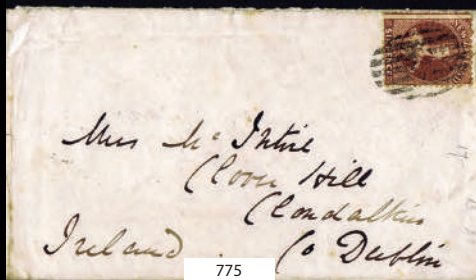 Miss McIntire
Cloon Hill
Clondalkin
Ireland. Co Dublin
775